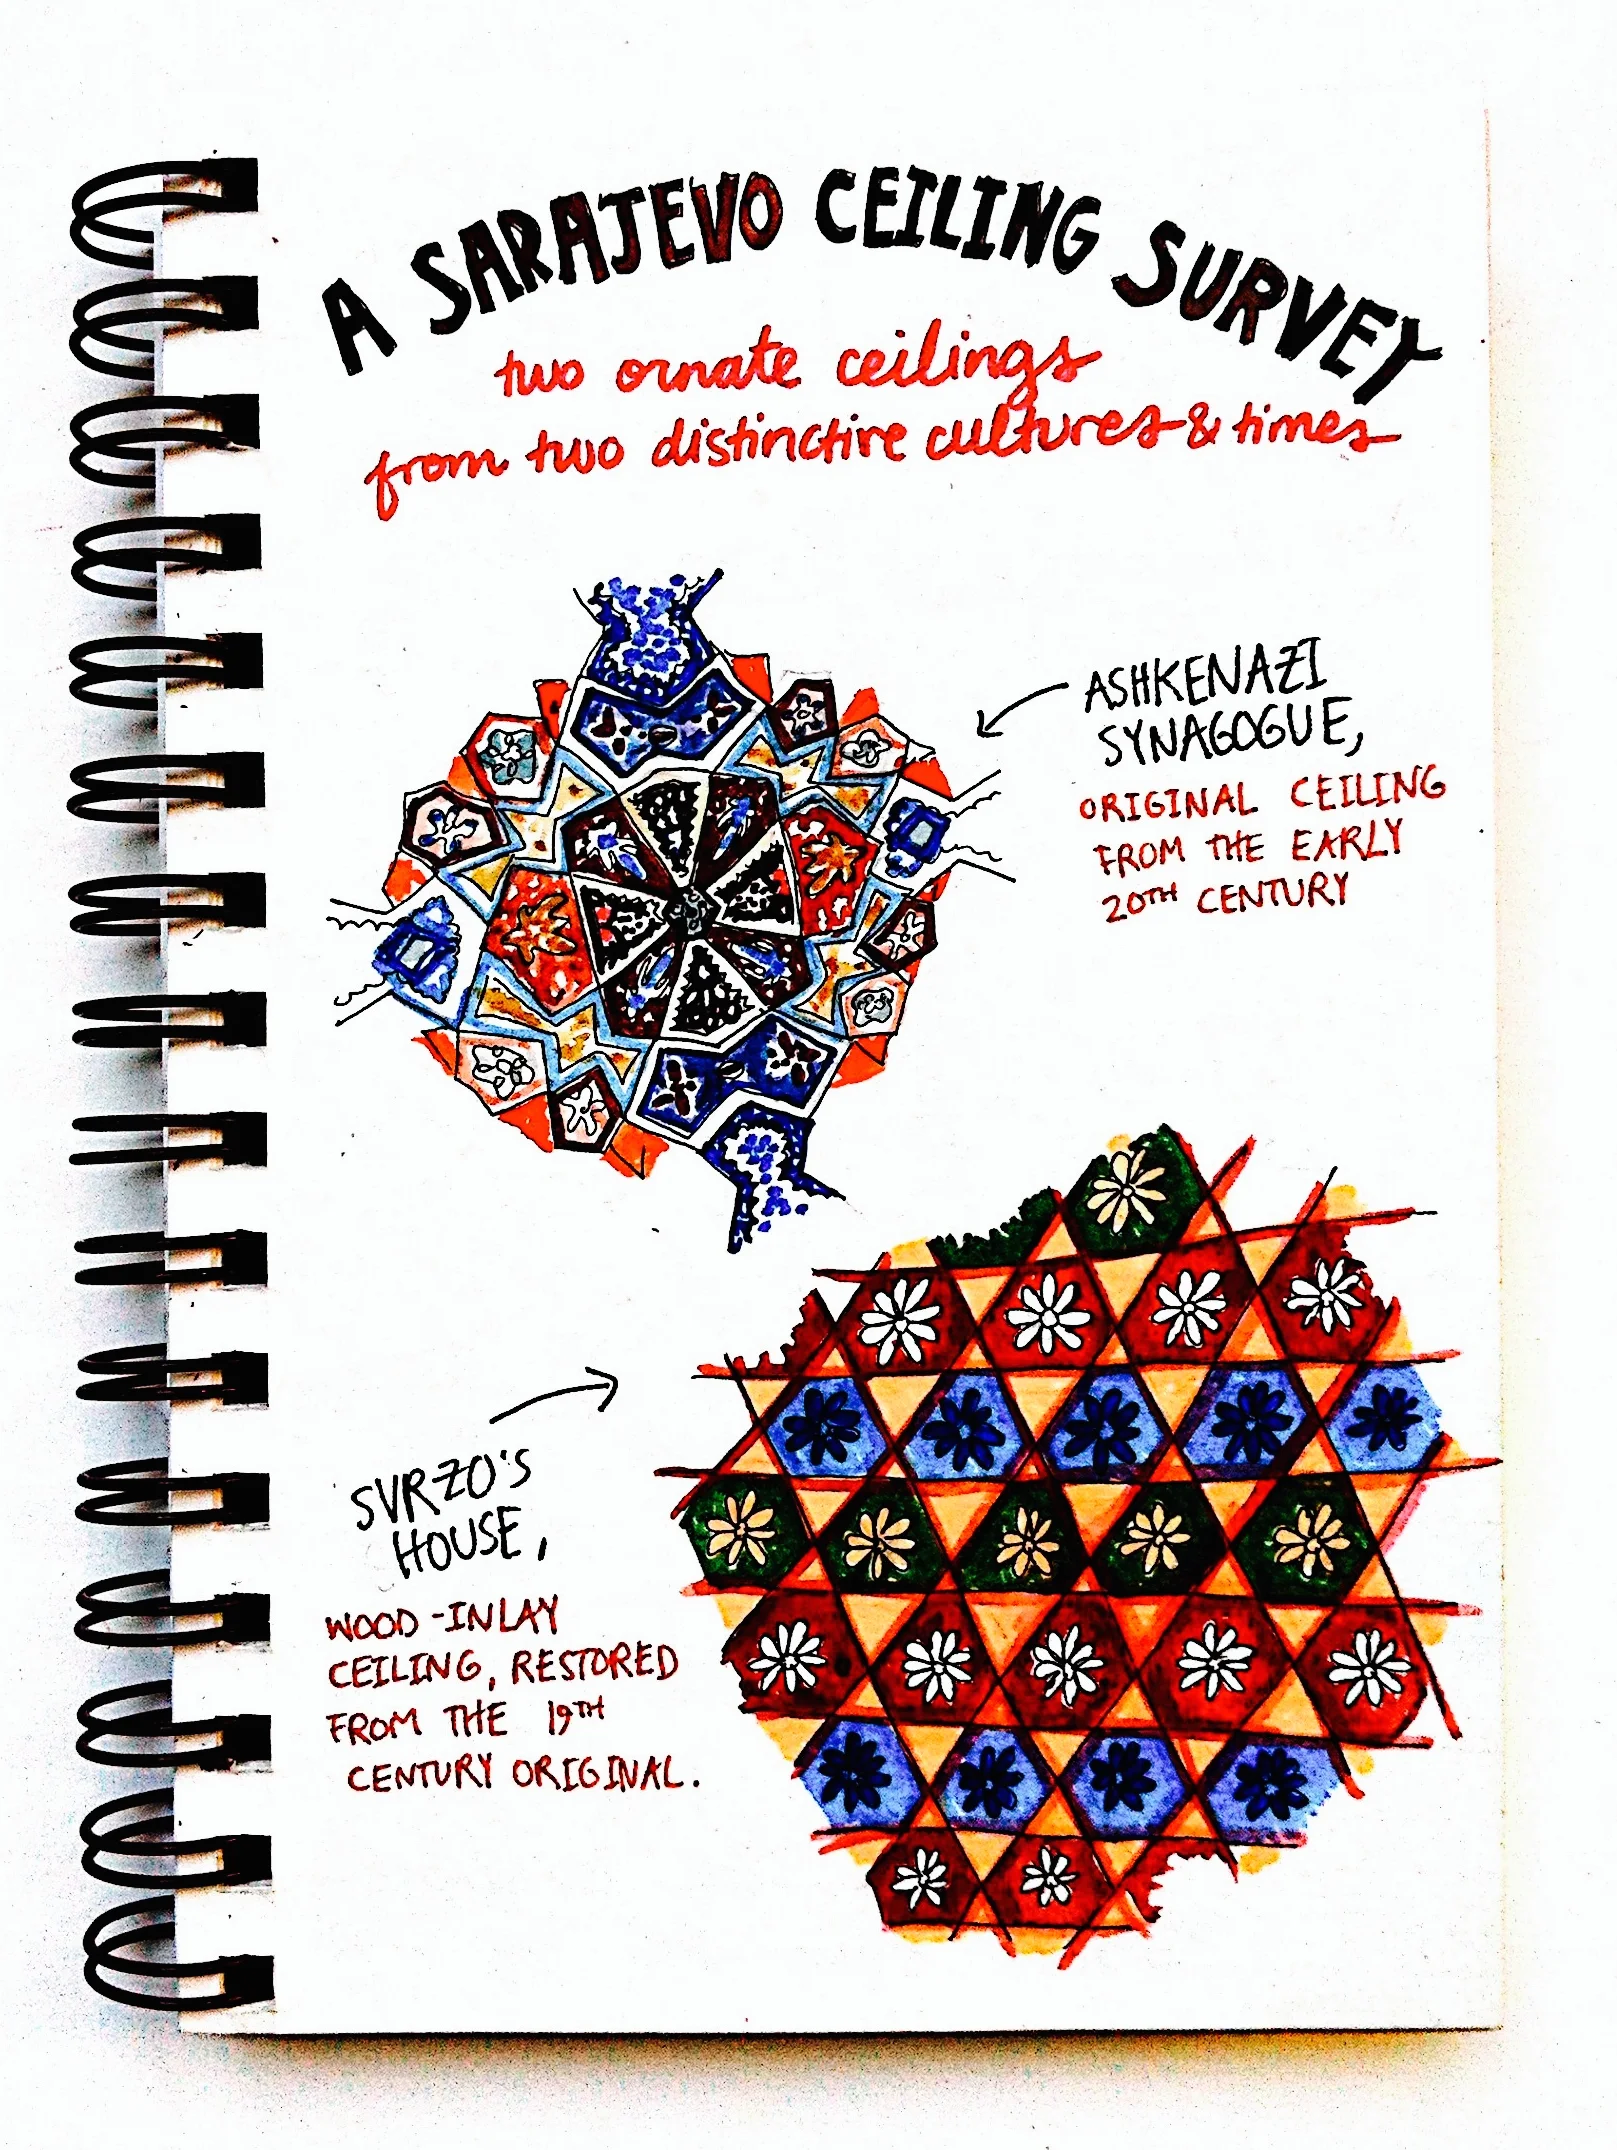 A SARAJEVO CEILING SURVEY
two ornate ceilings
from two distinctive cultures & times
ASHKENAZI
SYNAGOGUE,
ORIGINAL CEILING
FROM THE EARLY
20TH CENTURY
SVRZO'S
HOUSE,
WOOD-INLAY
CEILING, RESTORED
FROM THE 19TH
CENTURY ORIGINAL.